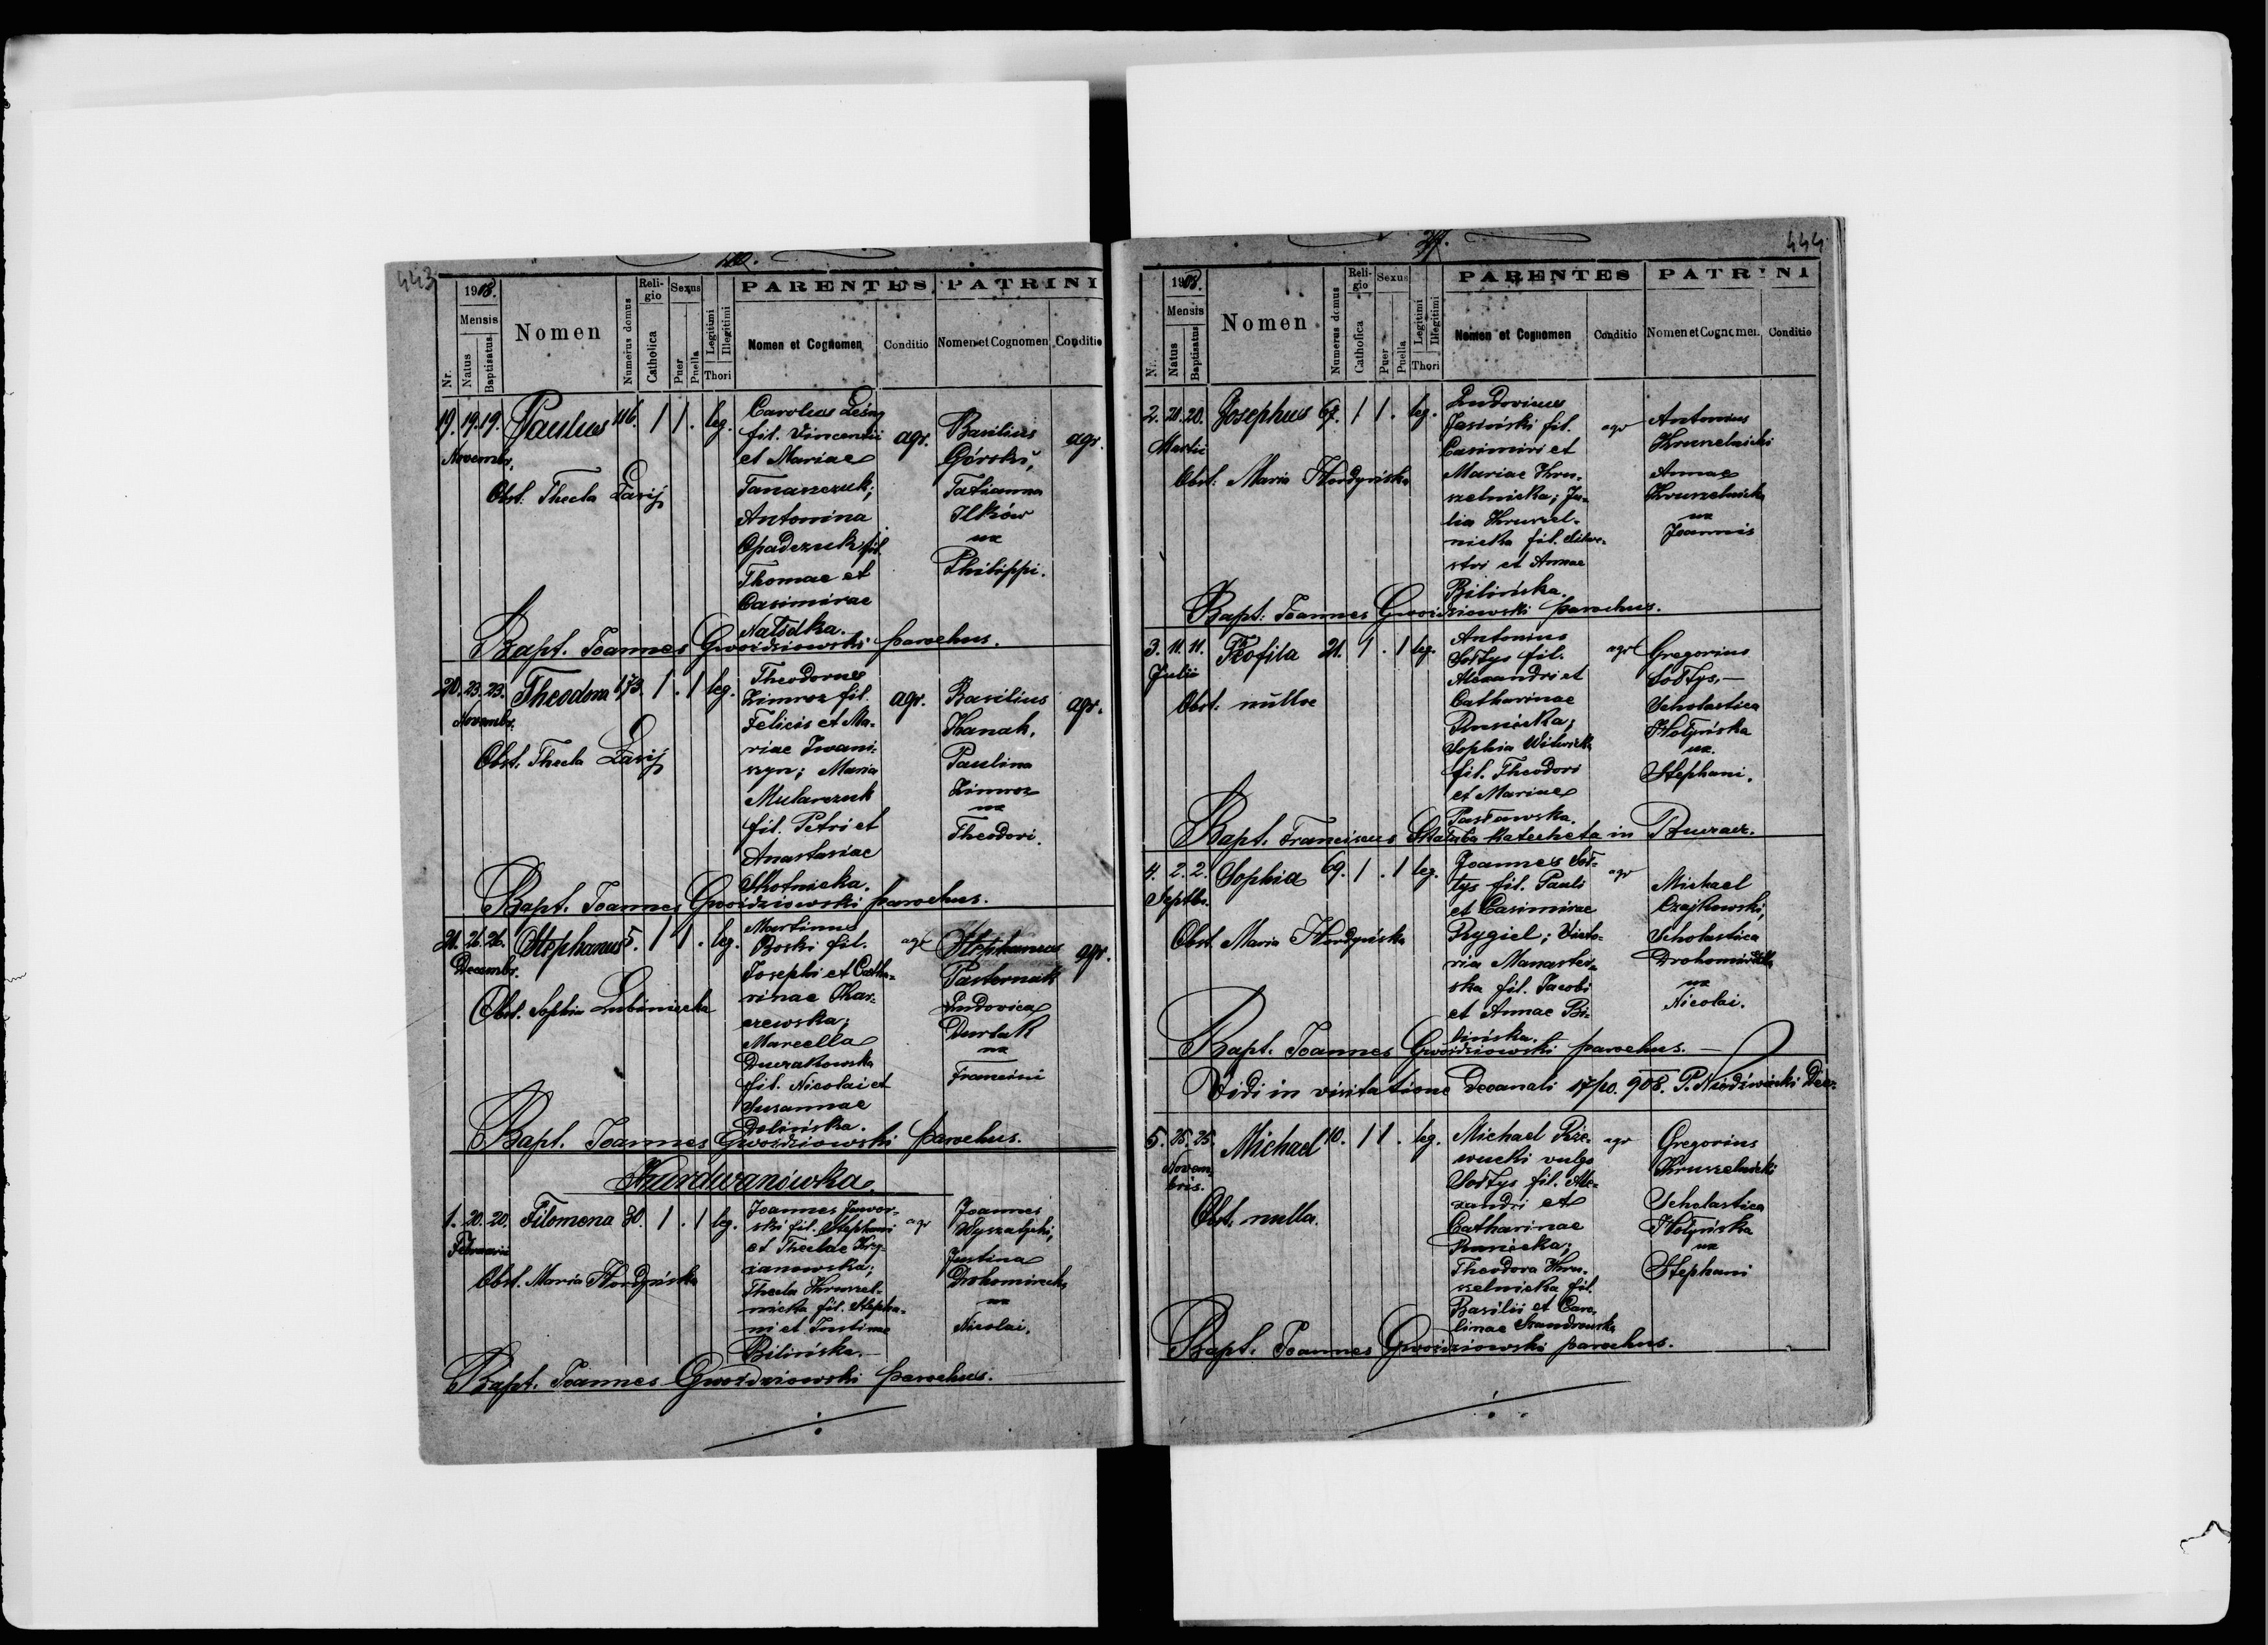 443
1908.
Mensis
Nr.
Natus
Baptisatus
Nomen
Numerus domus
Religio
Catholica
Sexus
Puer
Puella
Legitimi
Illegitimi
Thori
PARENTES
Nomen et Cognomen
Conditio
PATRINI
Nomen et Cognomen
Conditio
19. 19. 19. Paulus 116. 1 1. leg.
Novembr.
Obst. Thecla Zarij
Carolus Leśny
fil. Vincentii
et Mariae
Tanasczuk;
Antonina
Opadczuk fil.
Thomae et
Casimirae
Natódka.
agr.
Basilius
Górski,
Tatianna
Ilków
ux
Philippi.
agr.
Bapt. Joannes Gwoździowski parochus.
20. 23. 23. Theodora 173. 1 . 1 leg.
Novembr.
Obst. Thecla Zarij
Theodorus
Zimroz fil.
Felicis et Ma-
riae Iwani-
szyn; Maria
Mularczuk
fil. Petri et
Anastasiae
Skotnicka.
agr.
Basilius
Kanak,
Paulina
Zimroz
ux
Theodori.
agr.
Bapt. Joannes Gwoździowski parochus.
21. 26. 26. Stephanus 5. 1 1 . leg.
Decembr.
Obst. Sophia Lubiniecka
Martinus
Boski fil.
Josephi et Catha-
rinae Kar-
czewska;
Marcella
fil. Nicolai et
Susannae
Dolińska.
agr
Stephanus
Pasternak
Ludovica
Durlak
ux
Francisci
agr.
Bapt. Joannes Gwoździowski parochus.
Kurdwanówka.
1. 20. 20. Filomena 30. 1 . 1 leg.
Februarii
Obst. Maria Hordyńska
Joannes Jawor-
ski fil. Stephani
et Theclae Krzy-
żanowska;
Thecla Hruszel-
nicka fil. Stepha-
ni et Justinae
Bilińska.
agr
Joannes
Wyszatycki,
Justina
Drohomirecka
ux
Nicolai.
Bapt. Joannes Gwoździowski parochus.
444
1908.
Mensis
Nr.
Natus
Baptisatus
Nomen
Numerus domus
Religio
Catholica
Sexus
Puer
Puella
Legitimi
Illegitimi
Thori
PARENTES
Nomen et Cognomen
Conditio
PATRINI
Nomen et Cognomen
Conditio
2. 20. 20. Josephus 67. 1 1. leg.
Martii
Obst. Maria Hordyńska
Ludovicus
Jasiński fil.
Casimiri et
Mariae Hru-
szelnicka; Ju-
lia Hruszel-
nicka fil. Silwe-
stri et Annae
Bilińska.
agr
Antonius
Hruszelnicki
Annae
Hruszelnicka
ux
Joannis
Bapt. Joannes Gwoździowski parochus.
3. 11. 11. Teofila 21. 1 . 1 leg.
Julii
Obst. nulla
Antonius
Sołtys fil.
Alexandri et
Catharinae
Rusiecka;
Sophia Witwicka
fil. Theodori
et Mariae
Pasławska.
agr
Gregorius
Sołtys,
Scholastica
Hołyńska
ux.
Stephani.
Bapt. Franciscus Skałuba katecheta in Buczacz.
4. 2. 2. Sophia 69. 1 . 1 leg.
Septbr.
Obst. Maria Hordyńska
Joannes Soł-
tys fil. Pauli
et Casimirae
Rygiel; Victo-
ria Manaster-
ska fil. Jacobi
et Annae Bi-
lińska.
agr
Michael
Czajkowski,
Scholastica
Drohomirecka
ux
Nicolai.
Bapt. Joannes Gwoździowski parochus.
Vidi in visitatione Decanali 17/10. 908. P. Niedźwiecki Dec.
5. 25. 25. Michael 10. 1 1 . leg.
Novem-
bris.
Obst. nulla.
Michael Rze-
wucki vulgo
Sołtys fil. Ale-
xandri et
Catharinae
Rusiecka;
Theodora Hru-
szelnicka fil.
Basilii et Caro-
linae Szandrowska
agr
Gregorius
Hruszelnicki
Scholastica
Hołyńska
ux
Stephani
Bapt. Joannes Gwoździowski parochus.